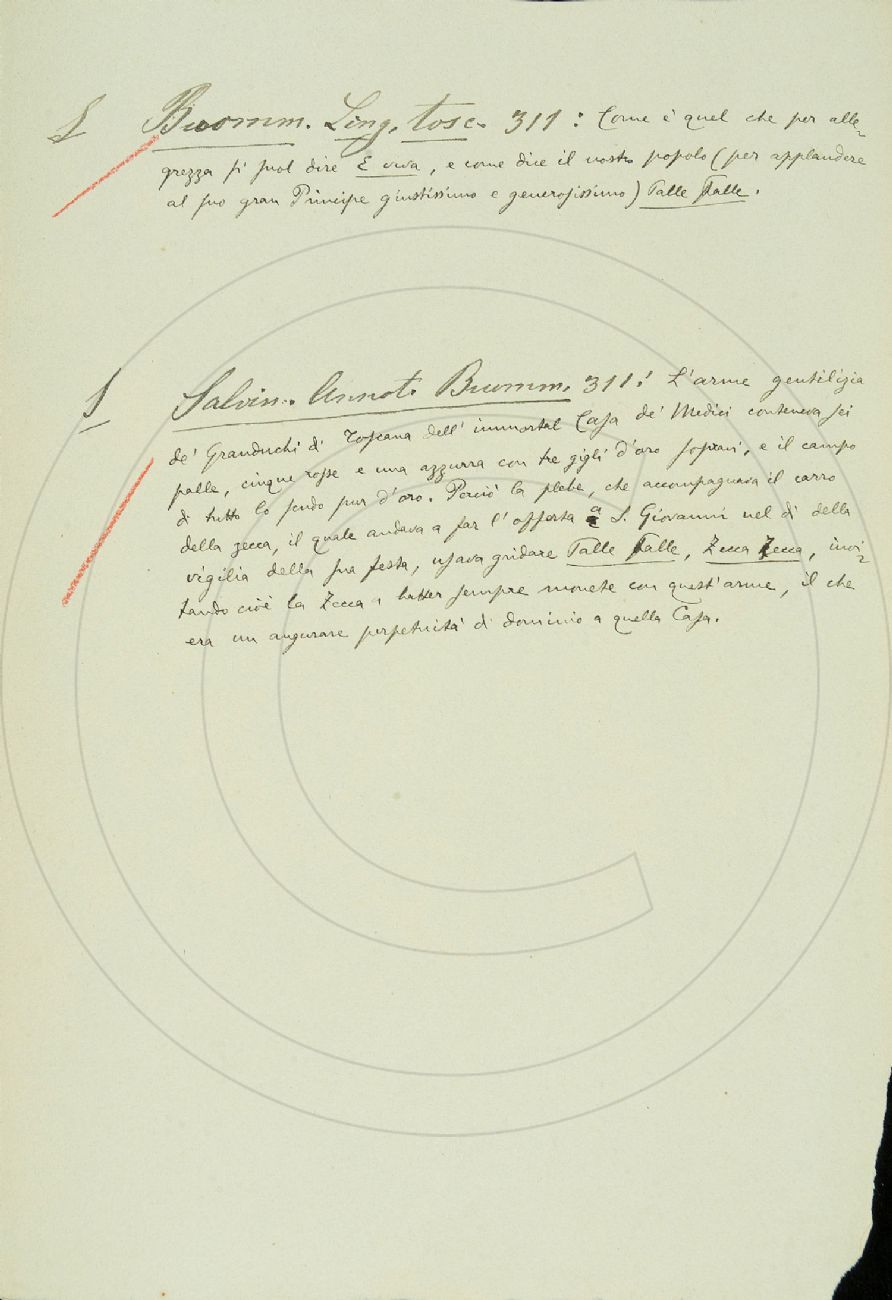 § Buomm. Ling. tosc. 311: Come è quel che per alle-
grezza si suol dire E viva, e come dice il nostro popolo (per applaudere
al suo gran Principe giustissimo e generosissimo) Palle Palle.
§ Salvin. Annot. Buomm. 311: L'arme gentilizia
de' Granduchi di Toscana dell' immortal Casa de' Medici conteneva sei
palle, cinque rosse e una azzurra con tre gigli d'oro sopravi, e il campo
di tutto lo scudo pur d'oro. Perciò la plebe, che accompagnava il carro
della zecca, il quale andava a far l'offerta a S. Giovanni nel dì della
vigilia della sua festa, usava gridare Palle Palle, Zecca Zecca, invi-
tando cioè la Zecca a batter sempre monete con quest'arme, il che
era un augurare perpetuità di dominio a quella Casa.